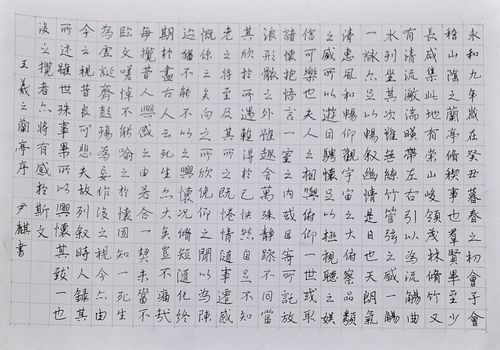 永和九年歲在癸丑暮春之初會于會
稽山陰之蘭亭脩禊事也羣賢畢至少
長咸集此地有崇山峻領茂林脩竹又
有清流激湍暎帶左右引以為流觴曲
水列坐其次雖無絲竹管弦之盛一觴
一詠亦足以暢叙幽情是日也天朗氣
清惠風和暢仰觀宇宙之大俯察品類
之盛所以遊目騁懷足以極視聽之娛
信可樂也夫人之相與俯仰一世或取
諸懷抱悟言一室之內或因寄所託放
浪形骸之外雖趣舍萬殊靜躁不同當
其欣於所遇暫得於己快然自足不知
老之將至及其所之既惓情隨事遷感
慨係之矣向之所欣俛仰之間以為陳
迹猶不能不以之興懷況脩短隨化終
期於盡古人云死生亦大矣豈不痛哉
每攬昔人興感之由若合一契未嘗不
臨文嗟悼不能喻之於懷固知一死生
為虛誕齊彭殤為妄作後之視今亦由
今之視昔悲夫故列叙時人錄其
所述雖世殊事異所以興懷其致一也
後之攬者亦將有感於斯文
王羲之蘭亭序 尹麒書